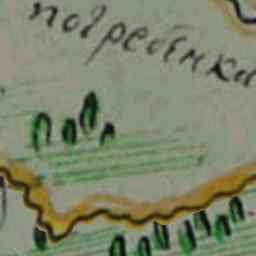 погребенка